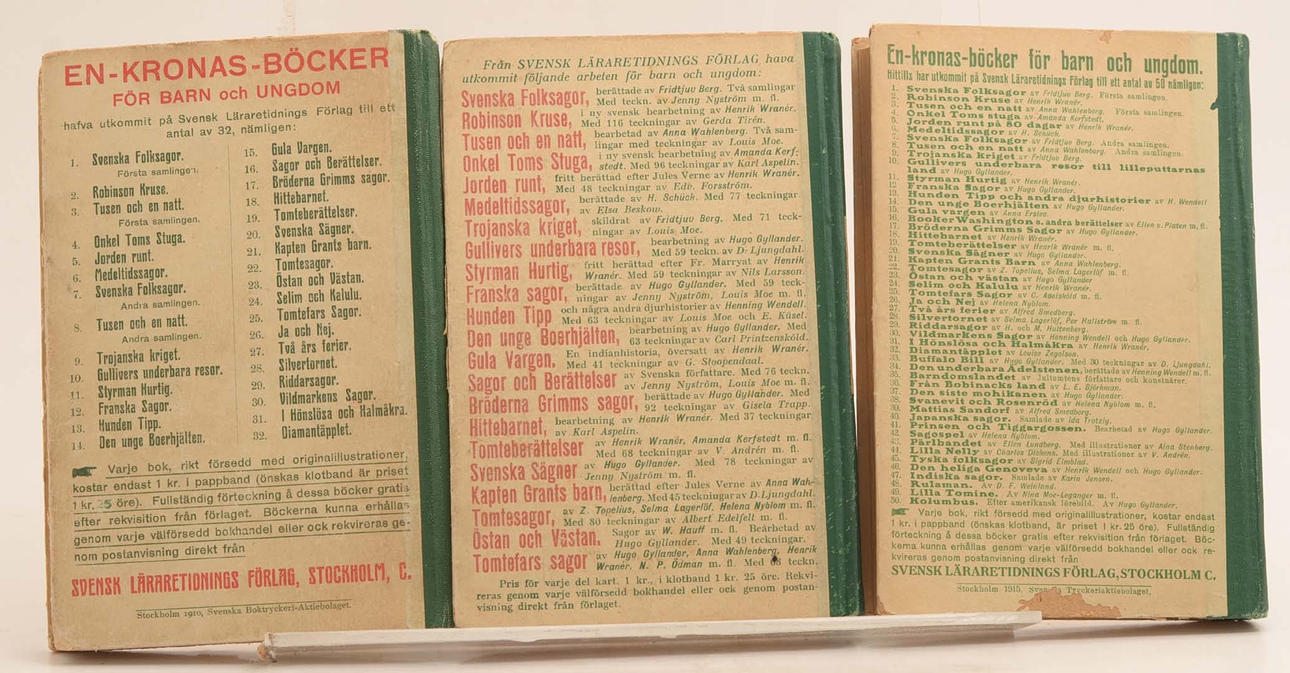 EN-KRONAS-BÖCKER
FÖR BARN och UNGDOM
hafva utkommit på Svensk Läraretidnings Förlag till ett
antal av 32, nämligen:
1. Svenska Folksagor.
Första samlingen.
2. Robinson Kruse.
3. Tusen och en natt.
Första samlingen.
4. Onkel Toms Stuga.
5. Jorden runt.
6. Medeltidssagor.
7. Svenska Folksagor.
Andra samlingen.
8. Tusen och en natt.
Andra samlingen.
9. Trojanska kriget.
10. Gullivers underbara resor.
11. Styrman Hurtig.
12. Franska Sagor.
13. Hunden Tipp.
14. Den unge Boerhjälten.
15. Gula Vargen.
16. Sagor och Berättelser.
17. Bröderna Grimms sagor.
18. Hittebarnet.
19. Tomteberättelser.
20. Svenska Sägner.
21. Kapten Grants barn.
22. Tomtesagor.
23. Östan och Västan.
24. Selim och Kalulu.
25. Tomtefars Sagor.
26. Ja och Nej.
27. Två års ferier.
28. Silvertornet.
29. Riddarsagor.
30. Vildmarkens Sagor.
31. I Hönslösa och Halmåkra.
32. Diamantäpplet.
Varje bok, rikt försedd med originalillustrationer,
kostar endast 1 kr. i pappband (önskas klotband är priset
1 kr. 25 öre). Fullständig förteckning å dessa böcker gratis
efter rekvisition från förlaget. Böckerna kunna erhållas
genom varje välförsedd bokhandel eller ock rekvireras ge-
nom postanvisning direkt från
SVENSK LÄRARETIDNINGS FÖRLAG, STOCKHOLM, C.
Stockholm 1910, Svenska Boktryckeri-Aktiebolaget.
Från SVENSK LÄRARETIDNINGS FÖRLAG hava
utkommit följande arbeten för barn och ungdom:
Svenska Folksagor, berättade av Fridtjuv Berg. Två samlingar
Med teckn. av Jenny Nyström m. fl.
Robinson Kruse, i ny svensk bearbetning av Henrik Wranér.
Med 116 teckningar av Gerda Tirén.
Tusen och en natt, bearbetad av Anna Wahlenberg. Två sam-
lingar med teckningar av Louis Moe.
Onkel Toms Stuga, i ny svensk bearbetning av Amanda Kerf-
stedt. Med 96 teckningar av Karl Aspelin.
Jorden runt, fritt berättad efter Jules Verne av Henrik Wranér.
Med 48 teckningar av Edv. Forsström.
Medeltidssagor, berättade av H. Schück. Med 77 teckningar
av Elsa Beskow.
Trojanska kriget, skildrat av Fridtjuv Berg. Med 71 teck-
ningar av Louis Moe.
Gullivers underbara resor, bearbetning av Hugo Gyllander.
Med 59 teckn. av D. Ljungdahl.
Styrman Hurtig, fritt berättad efter Fr. Marryat av Henrik
Wranér. Med 59 teckningar av Nils Larsson.
Franska sagor, berättade av Hugo Gyllander. Med 59 teck-
ningar av Jenny Nyström, Louis Moe m. fl.
Hunden Tipp och några andra djurhistorier av Henning Wendell.
Med 63 teckningar av Louis Moe och E. Küsel.
Den unge Boerhjälten, bearbetning av Hugo Gyllander. Med
63 teckningar av Carl Printzensköld.
Gula Vargen, En indianhistoria, översatt av Henrik Wranér.
Med 41 teckningar av G. Stoopendaal.
Sagor och Berättelser av Svenska författare. Med 76 teckn.
av Jenny Nyström, Louis Moe m. fl.
Bröderna Grimms sagor, berättade av Hugo Gyllander. Med
92 teckningar av Gisela Trapp.
Hittebarnet, bearbetning av Henrik Wranér. Med 37 teckningar
av Karl Aspelin.
Tomteberättelser av Henrik Wranér, Amanda Kerfstedt m. fl.
Med 68 teckningar av V. Andrén m. fl.
Svenska Sägner av Hugo Gyllander. Med 78 teckningar av
Jenny Nyström m. fl.
Kapten Grants barn, berättad efter Jules Verne av Anna Wah-
lenberg. Med 45 teckningar av D. Ljungdahl.
Tomtesagor, av Z. Topelius, Selma Lagerlöf, Helena Nyblom m. fl.
Med 80 teckningar av Albert Edelfelt m. fl.
Östan och Västan. Sagor av W. Hauff m. fl. Bearbetad av
Hugo Gyllander. Med 49 teckningar.
Tomtefars sagor av Hugo Gyllander, Anna Wahlenberg, Henrik
Wranér, N. P. Ödman m. fl. Med teckn.
Pris för varje del kart. 1 kr., i klotband 1 kr. 25 öre. Rekvi-
reras genom varje välförsedd bokhandel eller ock genom postan-
visning direkt från förlaget.
En-kronas-böcker för barn och ungdom.
Hittills har utkommit på Svensk Läraretidnings Förlag till ett antal av 50 nämligen:
1. Svenska Folksagor av Fridtjuv Berg. Första samlingen.
2. Robinson Kruse av Henrik Wranér.
3. Tusen och en natt av Anna Wahlenberg. Första samlingen.
4. Onkel Toms stuga av Amanda Kerfstedt.
5. Jorden runt på 80 dagar av Henrik Wranér.
6. Medeltidssagor av H. Schück.
7. Svenska Folksagor av Fridtjuv Berg. Andra samlingen.
8. Tusen och en natt av Anna Wahlenberg. Andra samlingen.
9. Trojanska kriget av Fridtjuv Berg.
10. Gullivers underbara resor till lilleputtarnas
land av Hugo Gyllander.
11. Styrman Hurtig av Henrik Wranér.
12. Franska Sagor av Hugo Gyllander.
13. Hunden Tipp och andra djurhistorier av H. Wendell
14. Den unge Boerhjälten av Hugo Gyllander.
15. Gula vargen av Anna Ersten.
16. Booker Washington o. andra berättelser av Ellen v. Platen m. fl.
17. Bröderna Grimms Sagor av Hugo Gyllander.
18. Hittebarnet av Henrik Wranér.
19. Tomteberättelser av Henrik Wranér m. fl.
20. Svenska Sägner av Hugo Gyllander.
21. Kapten Grants Barn av Anna Wahlenberg.
22. Tomtesagor av Z. Topelius, Selma Lagerlöf m. fl.
23. Östan och västan av Hugo Gyllander
24. Selim och Kalulu av Henrik Wranér.
25. Tomtefars Sagor av C. Agelsköld m. fl.
26. Ja och Nej av Helena Nyblom.
27. Två års ferier av Alfred Smedberg.
28. Silvertornet av Selma Lagerlöf, Per Hallström m. fl.
29. Riddarsagor av H. och M. Hultenberg.
30. Vildmarkens Sagor av Henning Wendell och Hugo Gyllander.
31. I Hönslösa och Halmåkra av Henrik Wranér.
32. Diamantäpplet av Louise Zegolson.
33. Buffalo Bill av Hugo Gyllander. Med 30 teckningar av D. Ljungdahl.
34. Den underbara Ädelstenen, berättade av Henning Wendell m. fl.
35. Barndomslandet av Jultomtens författare och konstnärer.
36. Från Bobinacks land av L. E. Björkman.
37. Den siste mohikanen av Hugo Gyllander.
38. Svanevit och Rosenröd av Helena Nyblom m. fl.
39. Mattias Sandorf av Alfred Smedberg.
40. Japanska sagor. Samlade av Ida Trotzig.
41. Prinsen och Tiggargossen. Bearbetad av Hugo Gyllander.
42. Sagospel av Helena Nyblom.
43. Pärlbandet av Ellen Lundberg. Med illustrationer av Aina Stenberg.
44. Lilla Nelly av Charles Dickens. Med illustrationer av V. Andrén.
45. Tyska folksagor av Sigrid Elmblad.
46. Den heliga Genoveva av Henrik Wendell och Hugo Gyllander.
47. Indiska sagor. Samlade av Karin Jensen.
48. Rulaman. Av D. F. Weinland.
49. Lilla Tomine. Av Nina Moe-Leganger m. fl.
50. Kolumbus. Efter amerikansk förebild. Av Hugo Gyllander.
Varje bok, rikt försedd med originalillustrationer, kostar endast
1 kr. i pappband (önskas klotband, är priset 1 kr. 25 öre). Fullständig
förteckning å dessa böcker gratis efter rekvisition från förlaget. Böc-
kerna kunna erhållas genom varje välförsedd bokhandel eller ock re-
kvireras genom postanvisning direkt från
SVENSK LÄRARETIDNINGS FÖRLAG, STOCKHOLM C.
Stockholm 1915, Svenska Tryckeriaktiebolaget.